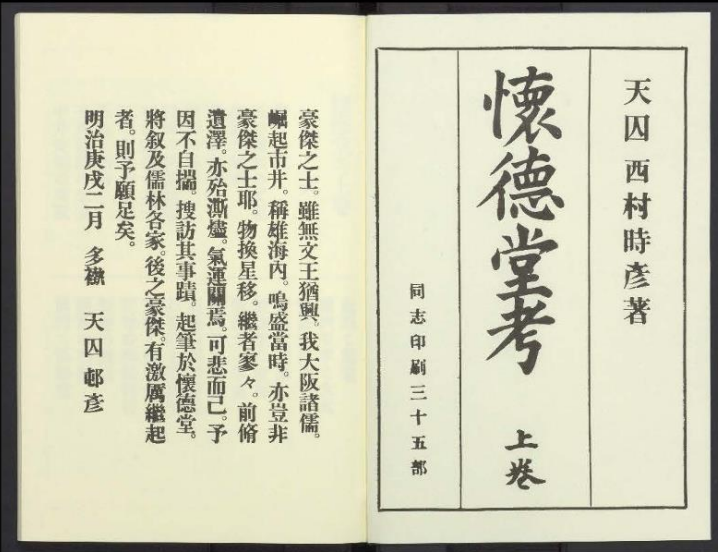 天囚 西村時彥著
懷德堂考
上卷
同志印刷三十五部
豪傑之士。雖無文王猶興。我大阪諸儒。
崛起市井。稱雄海內。鳴盛當時。亦豈非
豪傑之士耶。物換星移。繼者寥々。前脩
遺澤。亦殆澌燼。氣運關焉。可悲而已。予
因不自揣。搜訪其事蹟。起筆於懷德堂。
將叙及儒林各家。後之豪傑。有激厲繼起
者。則予願足矣。
明治庚戌二月 多襟 天囚 邨彥